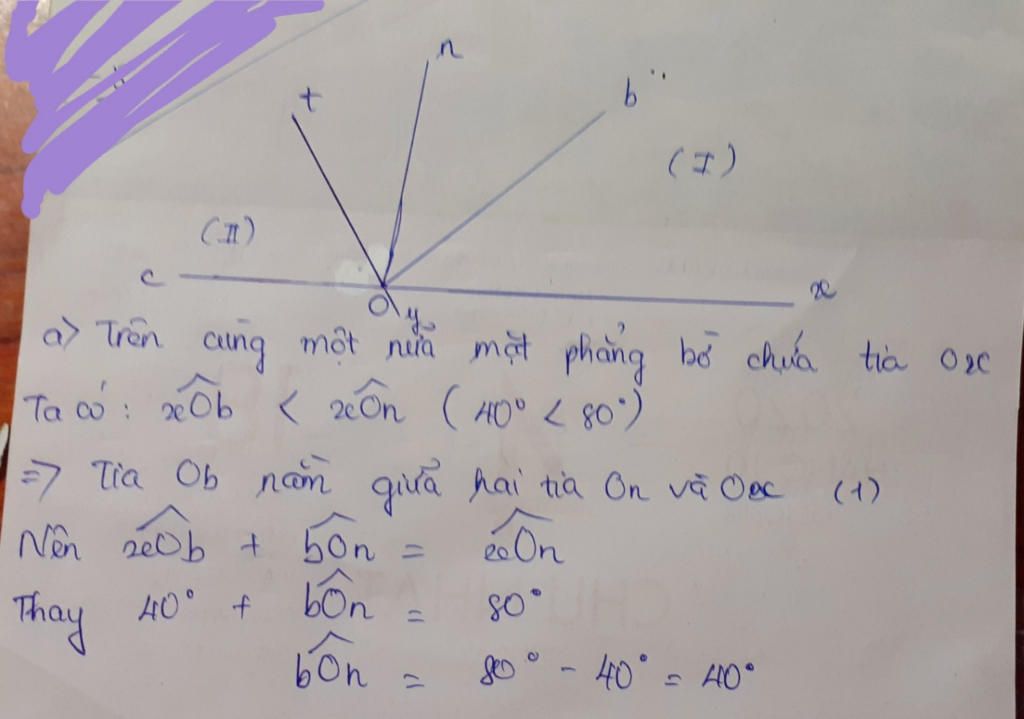 n
t
b
(I)
(II)
c
x
O y
a) Trên cùng một nửa mặt phẳng bờ chứa tia Ox
Ta có: xÔb < xÔn (40° < 80°)
=> Tia Ob nằm giữa hai tia On và Ox (1)
Nên xÔb + bÔn = xÔn
Thay 40° + bÔn = 80°
bÔn = 80° - 40° = 40°